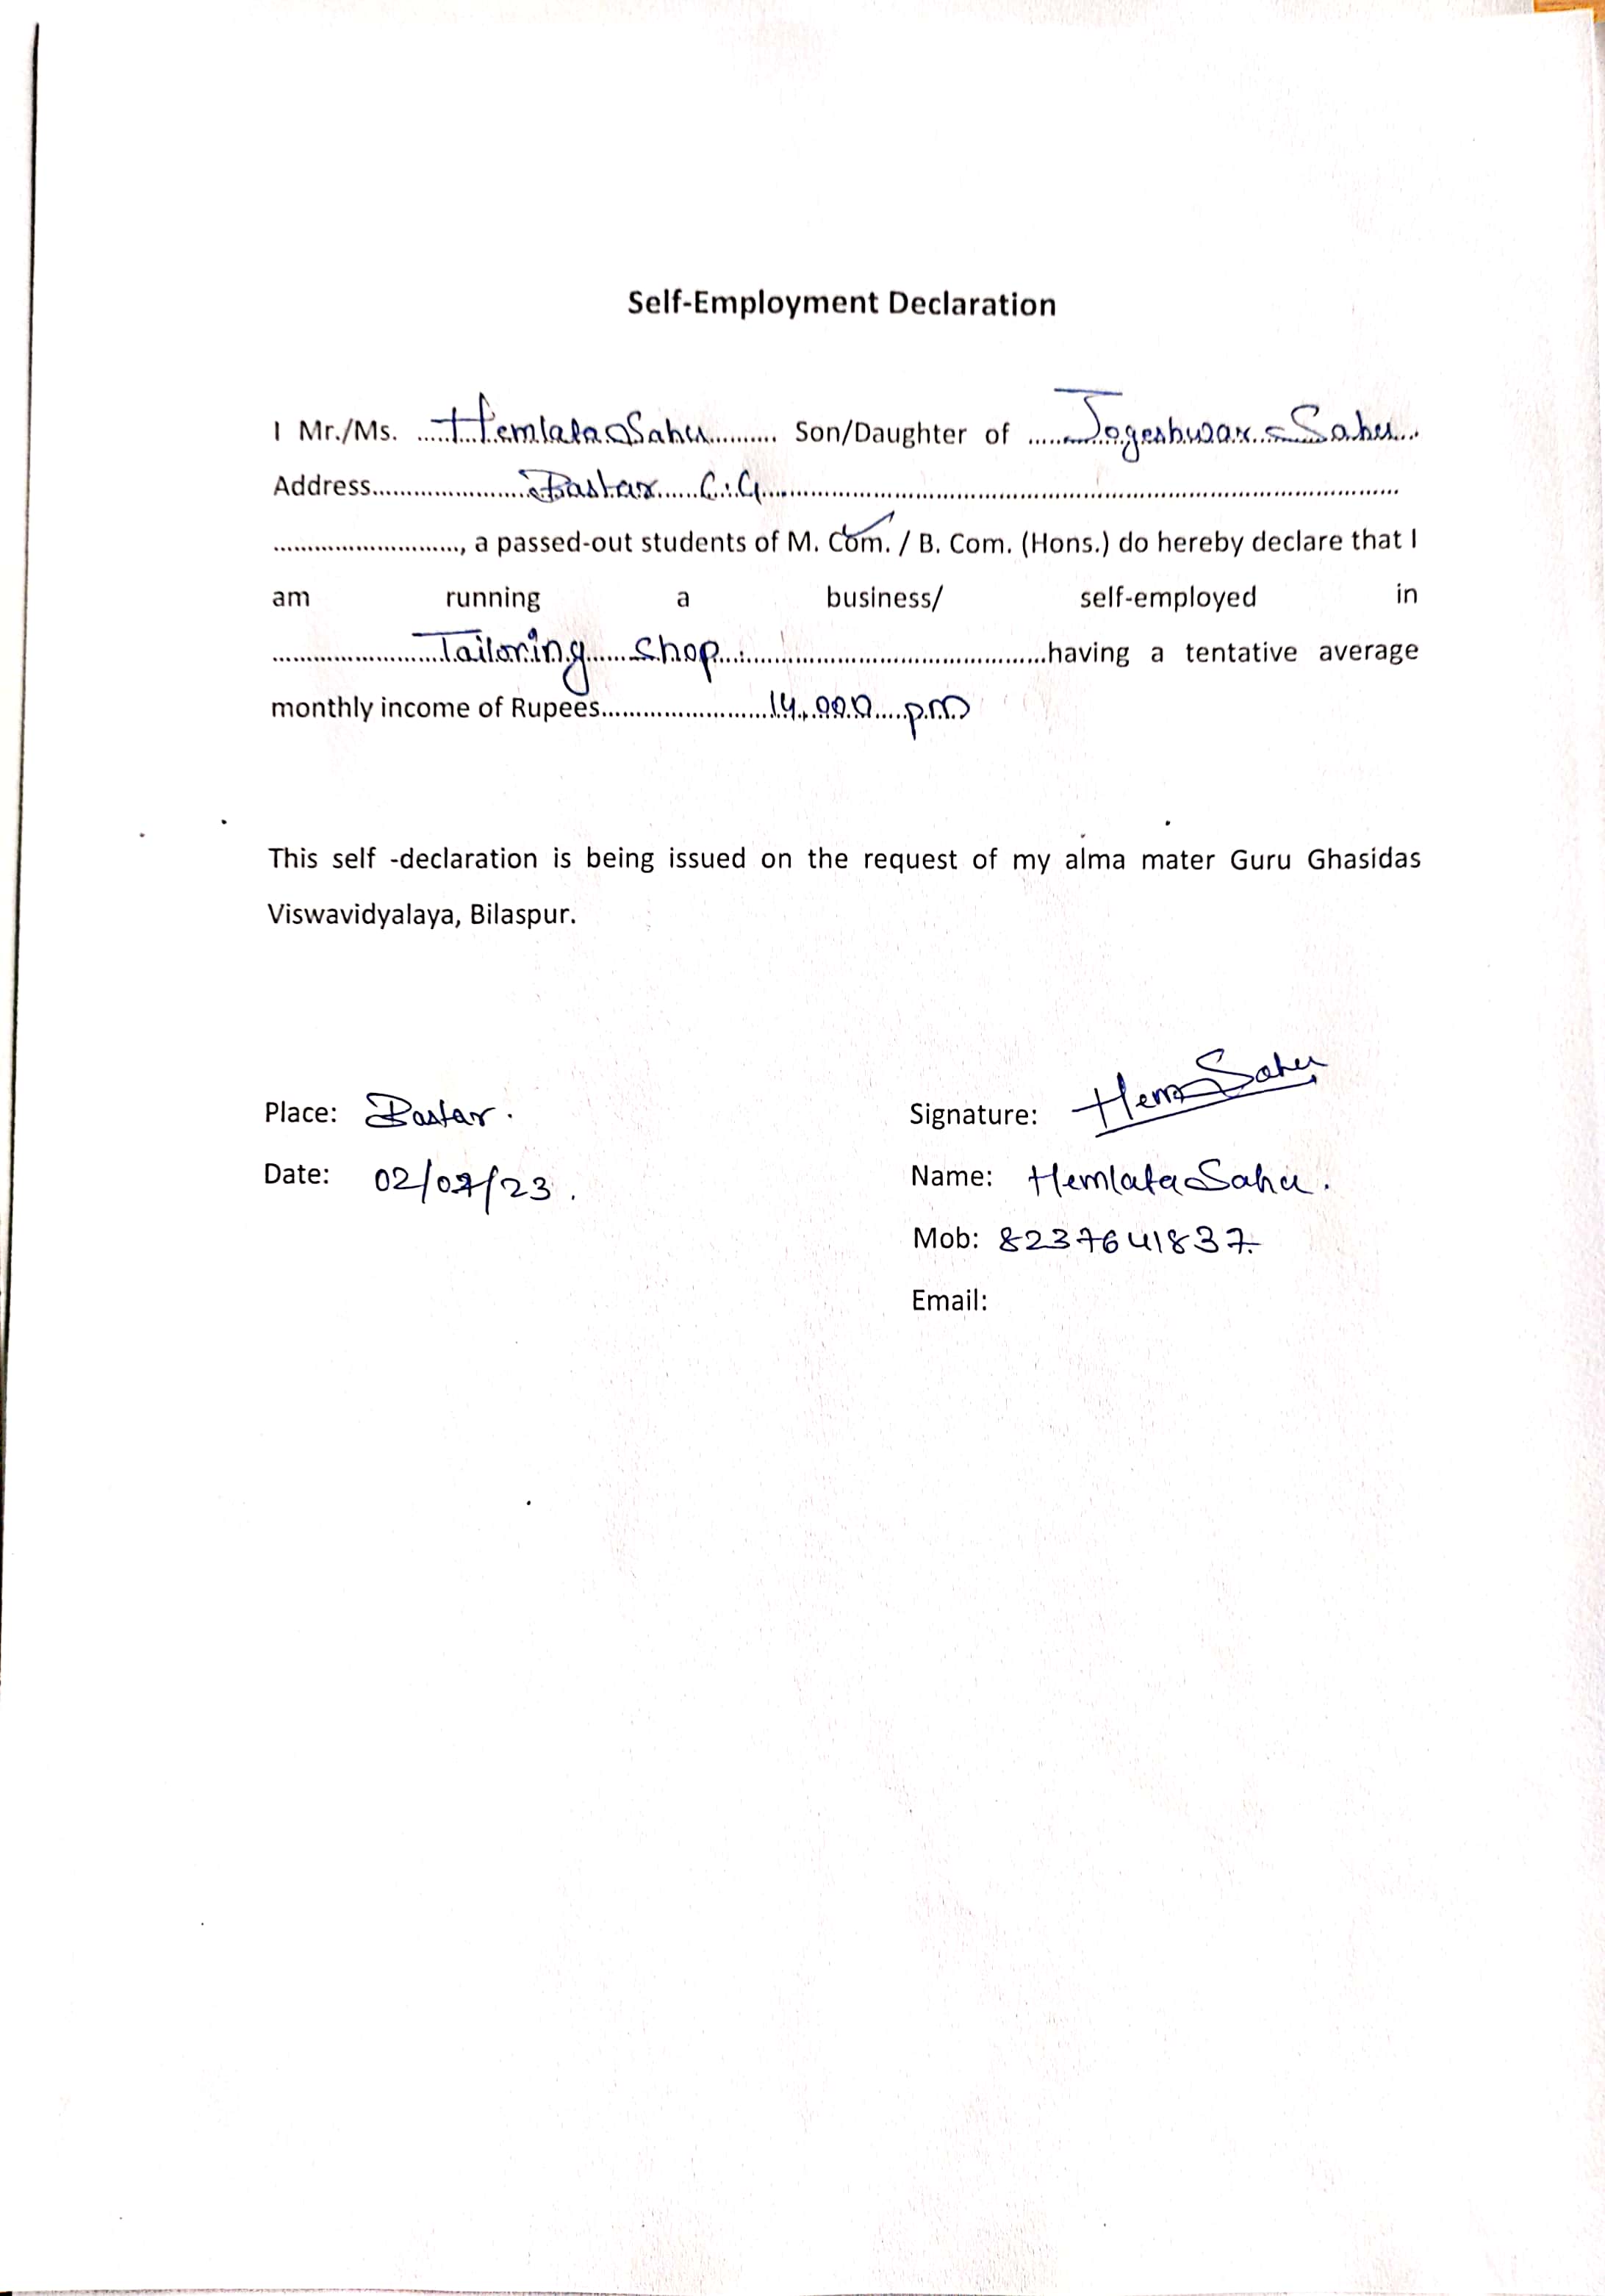 Self-Employment Declaration
I Mr./Ms. .....Hemlata Sahu.......... Son/Daughter of .....Jogeshwar Sahu...
Address......................Bastar......C.G...............................................................................................
..........................., a passed-out students of M. Com. / B. Com. (Hons.) do hereby declare that I
am running a business/ self-employed in
........................Tailoring......Shop................................................having a tentative average
monthly income of Rupees........................14,000.....pm
This self -declaration is being issued on the request of my alma mater Guru Ghasidas
Viswavidyalaya, Bilaspur.
Place: Bastar.
Date: 02/07/23.
Signature: Hem Sahu
Name: Hemlata Sahu.
Mob: 8237641837.
Email: